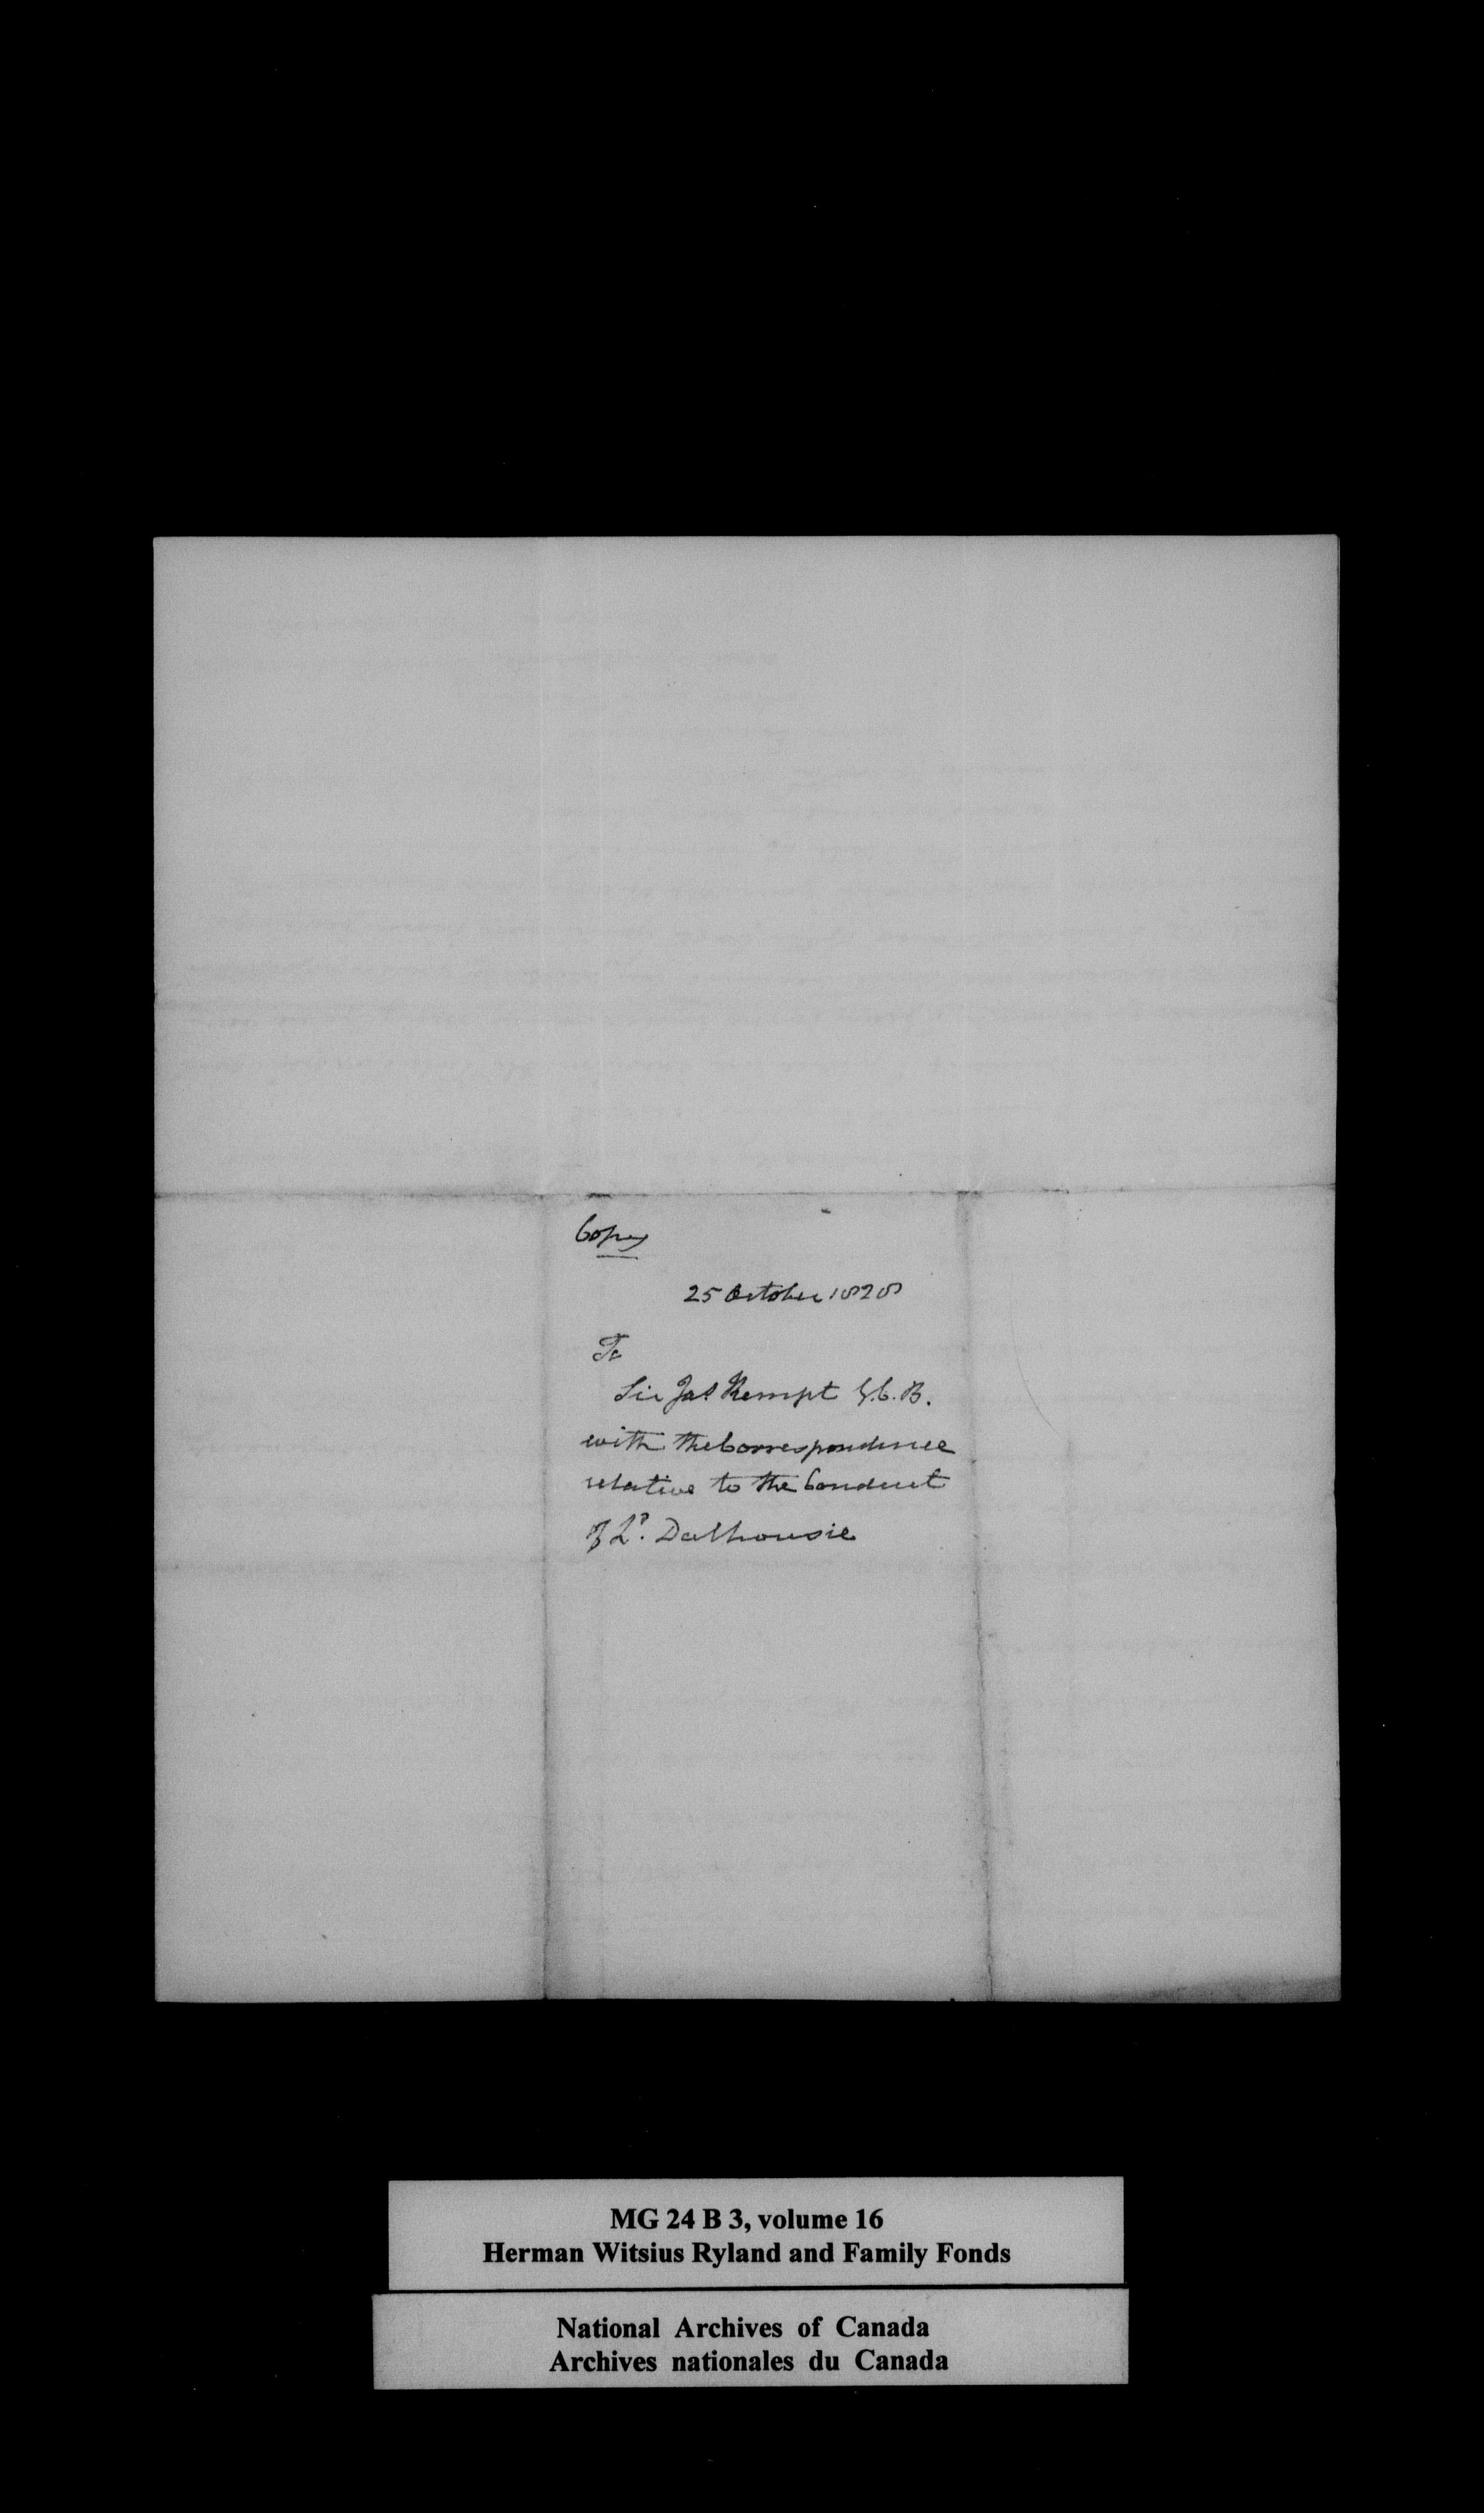 Copy
25 October 1828
To
Sir Jas Kempt G.C.B.
with the Correspondence
relative to the Conduct
of Ld. Dalhousie
MG 24 B 3, volume 16
Herman Witsius Ryland and Family Fonds
National Archives of Canada
Archives nationales du Canada